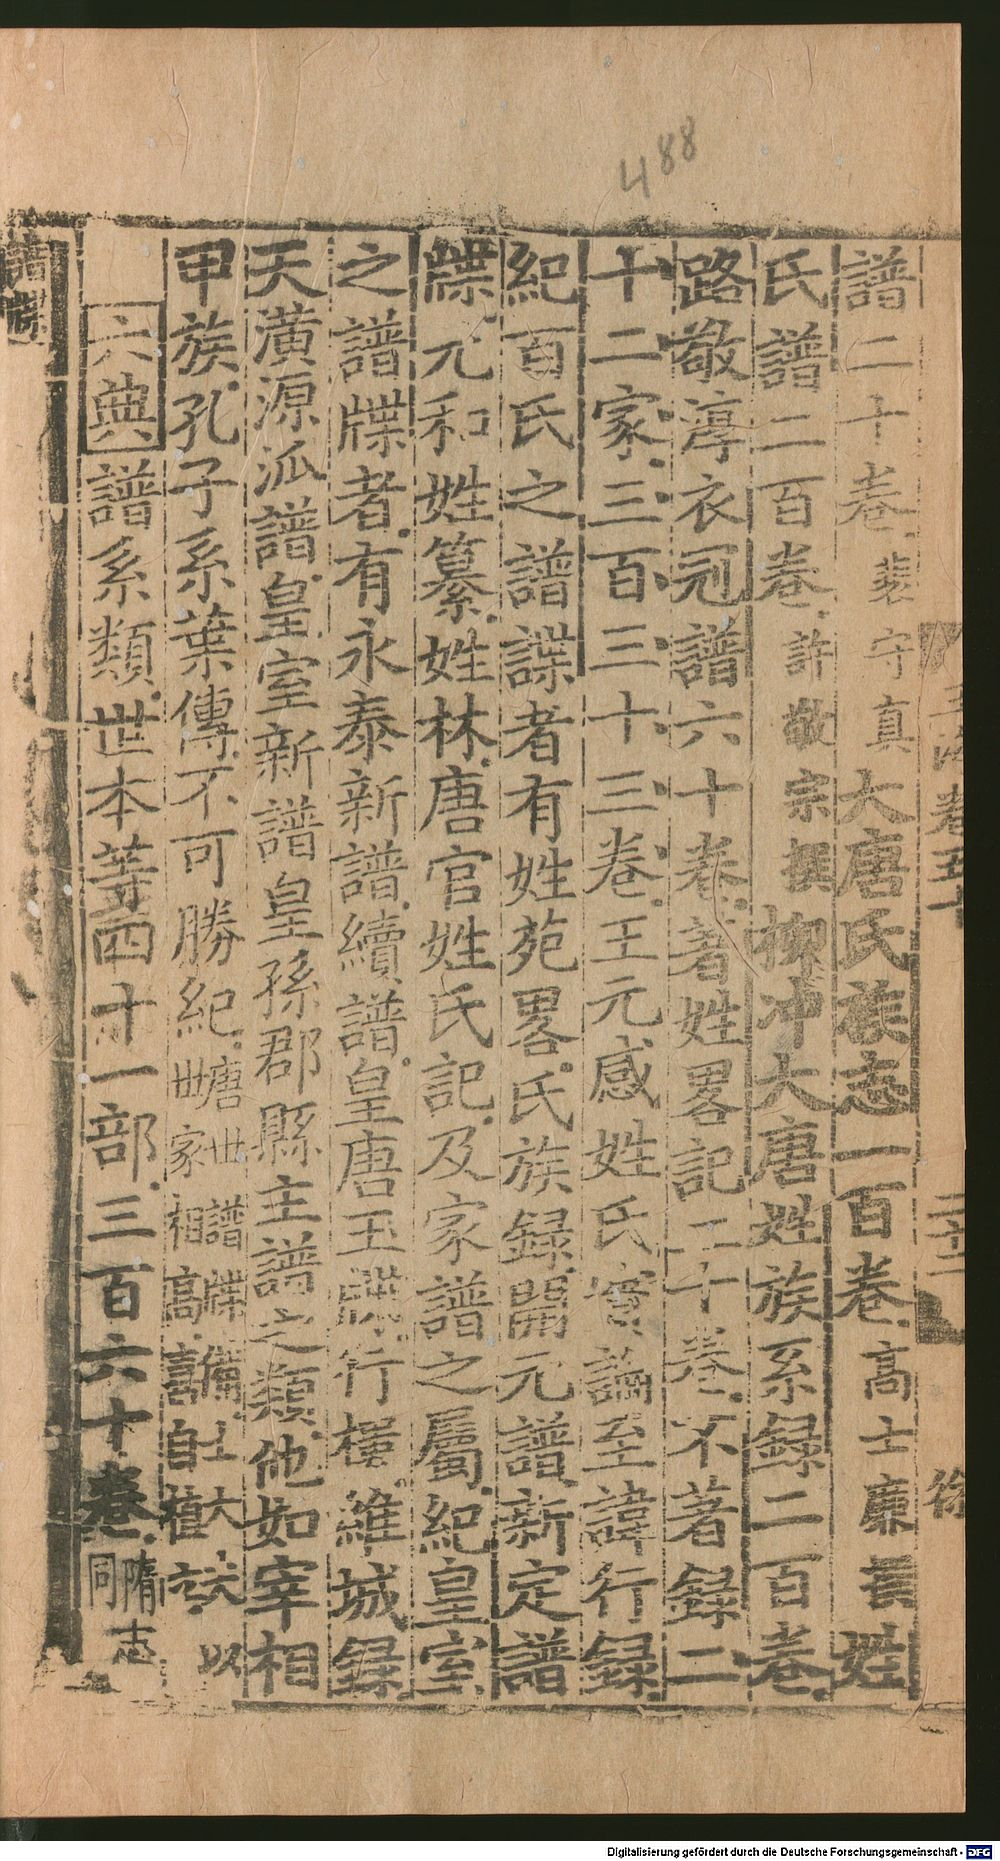 488
譜二十卷裴守真大唐氏族志一百卷高士廉撰姓
氏譜二百卷許敬宗撰柳冲大唐姓族系録二百卷
路敬淳衣冠譜六十卷著姓畧記二十卷不著録二
十二家三百三十三卷王元感姓氏實論至諱行録
紀百氏之譜諜者有姓苑畧氏族録開元譜新定譜
牒元和姓纂姓林唐官姓氏記及家譜之屬紀皇室
之譜牒者有永泰新譜續譜皇唐玉牒行樓維城録
天潢源派譜皇室新譜皇孫郡縣主譜之類他如宰相
甲族孔子系葉傳不可勝紀唐世譜牒備士大夫以
世家相高善自
六典譜系類世本䓁四十一部三百六十卷隋志
同
譜牒
卷五十
徐
Digitalisierung gefördert durch die Deutsche Forschungsgemeinschaft - DFG